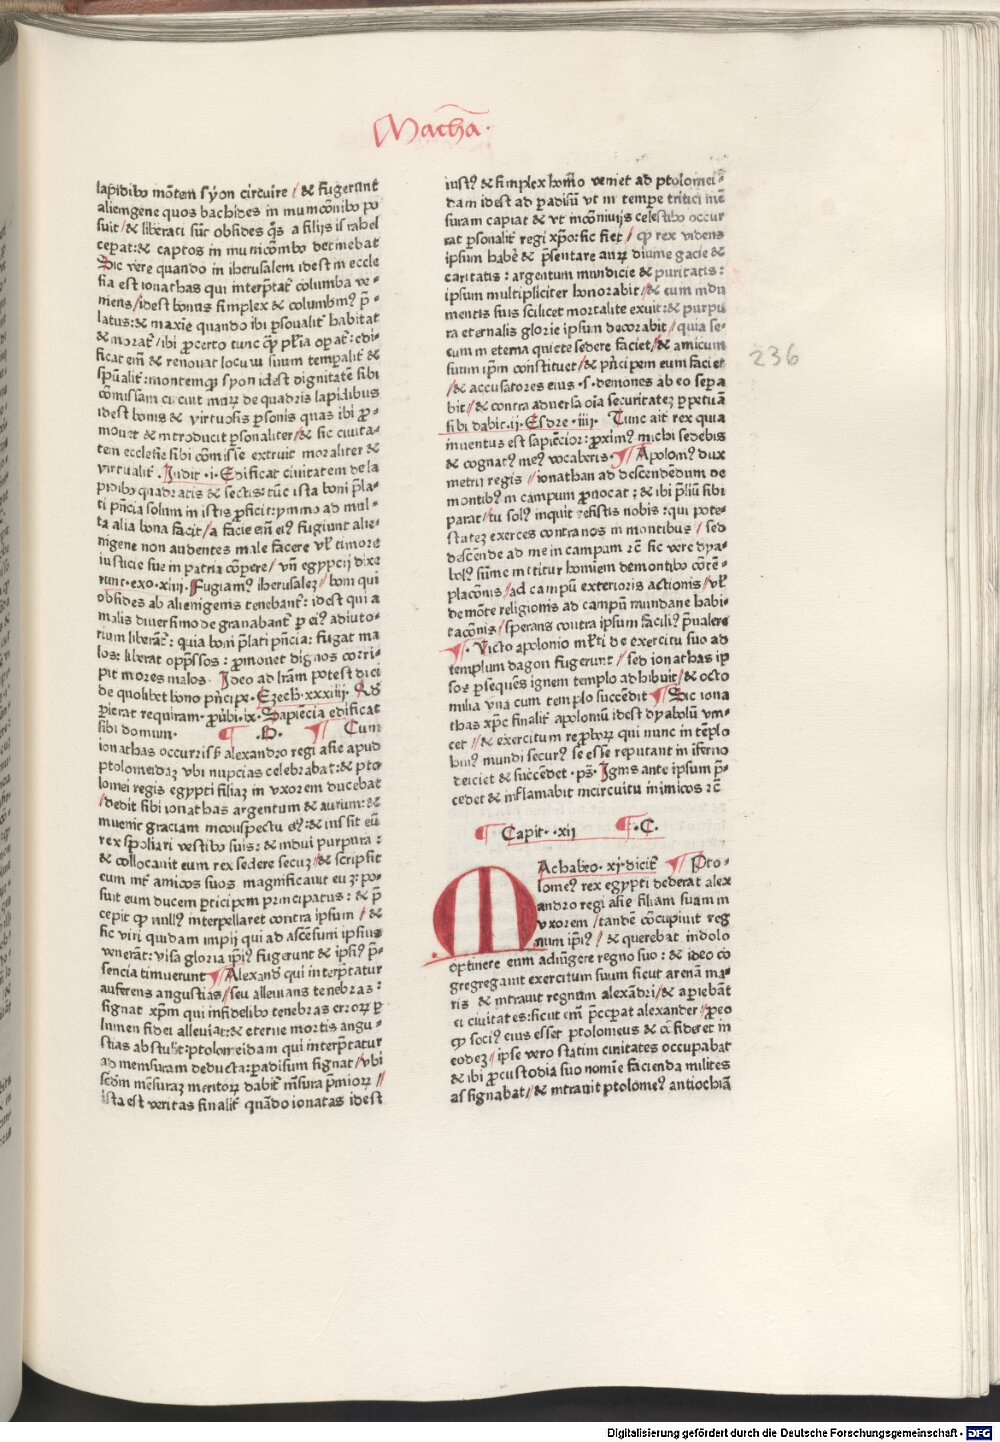 Machā·
lapidibꝰ mōtem syon circuire / & fugerunt
aliengene quos bachides in municōnibꝰ po
suit / & liberati sūt obsides q̄s a filijs israhel
ceperat: & captos in municōnibo detinebat
Sic vere quando in iherusalem idest in eccle
sia est ionathas qui interp̄tat᷑ columba ve-
niens / idest bonus simplex & columbinꝰ p̄-
latus: & maxīe quando ibi ꝑsonalit᷑ habitat
& morat᷑ / ibi ꝓcerto tunc q̄ꝫ pr̄ia opat᷑: edi-
ficat em̄ & renouat locum suum temporalit᷑ &
spūalit᷑: montemqꝫ syon idest dignitatē sibi
cōmissam circuit muꝝ de quadris lapidibus
idest bonis & virtuosis ꝑsonis quas ibi ꝓ-
mouet & introducit ꝑsonaliter / & sic ciuita-
tem ecclesie sibi cōmissē extruit moraliter &
virtualit᷑. Judit ·i· Edificat ciuitatem de la
pidibo quadratis & sectis: tūc ista boni p̄la-
ti pn̄cia solum in istis ꝓficit: ymmo ad mul-
ta alia bona facit / a facie em̄ eiꝰ fugiunt alie-
nigene non audentes male facere vl᷑ timore
iusticie sue in patria cōpere / vn̄ egypcij dixe
runt· exo· xiiij· Fugiamꝰ iherusaleꝫ / boni qui
obsides ab alienigenis tenebant᷑: idest qui a
malis diuersimode granabant᷑ ꝑ eiꝰ adiuto-
rium liberāt᷑: quia boni p̄lati pn̄cia: fugat ma
los: liberat opp̄ssos: ꝓmouet dignos corri-
pit mores malos. Ideo ad lr̄am potest dici
de quolibet bono pn̄cipe· Ezech· xxxiiij· Qd̄
perierat requiram· ꝓūbi· ix· Sapiēcia edificat
sibi domum· ¶ ·B· ¶ Cum
ionathas occurriss᷑ alexandro regi asie apud
ptolomeidaꝫ vbi nupcias celebrabat: & pto
lomei regis egypti filiaꝫ in vxorem ducebat
/ dedit sibi ionathas argentum & aurum: &
inuenit graciam inconspectu eiꝰ: & iussit eū
rex spoliari vestibo suis: & indui purpura:
& collocauit eum rex sedere secuꝫ / & scripsit
eum int᷑ amicos suos magnificauit euꝫ: po-
suit eum ducem ꝑticipem principatus: & p̄
cepit ꝙ nullꝰ interpellaret contra ipsum / &
sic viri quidam impij qui ad ascēsum ipsius
venerāt: visa gloria ipiꝰ fugerunt & ipsiꝰ p̄-
senciā timuerunt ¶ Alexand᷑ qui interp̄tatur
auferens angustias / seu alleuians tenebras:
signat xp̄m qui infidelibo tenebras erroꝝ ꝑ
lumen fidei alleuiat: & eterne mortis angu-
stias abstulit: ptolomeidam qui interp̄tatur
ad mensuram deducta: ꝑadisum signat / vbi
scd̄m mēsuraꝫ meritoꝝ dabit᷑ mēsura p̄mioꝝ //
ista est veritas finalit᷑ quādo ionatas idest
iustꝰ & simplex homo veniet ad ptolomei-
dam idest ad ꝑadisū vt in tempe tritici mē
suram capiat & vt incōniuijs celestibo occur
rat ꝑsonalit᷑ regi xp̄o: sic fiet / ꝙ rex videns
ipsum habē & p̄sentare auꝝ diuine gacie &
caritatis: argentum mundicie & puritatis:
ipsum multipliciter honorabit / & eum indu
mentis suis scilicet mortalitē exuit: & purpu
ra eternalis glorie ipsum decorabit / quia se-
cum in eterna quiete sedere faciet / & amicum
suum ip̄m constituet / & pn̄cipem eum faciet
/ & accusatores eius ·s· demones ab eo sepa
bit / & contra aduersa oīa securitateꝫ ꝑpetuā
sibi dabit· ij· Esdre· iiij· Tunc ait rex quia
inuentus est sapiēcior: ꝓximꝰ michi sedebis
& cognatꝰ meꝰ vocaberis· ¶ Apolonꝰ dux
metrij regis / ionathan ad descendēdum de
montibꝰ in campum ꝓuocat: & ibi p̄liū sibi
parat / tu solꝰ inquit resistis nobis: qui pote-
stateꝫ exerces contra nos in montibus / sed
descēde ad me in campum ⁊c̄ sic vere dya-
bolꝰ sūme nititur hominem de montibo cōtē-
placōnis / ad campū exterioris actionis / vl᷑
de mōte religionis ad campū mundane habi-
tacōnis / sperans contra ipsum faciliꝰ p̄ualere
¶· Victo apolonio ml᷑ti de exercitu suo ad
templum dagon fugerunt / sed ionathas ip
sos ꝑsequēs ignem templo adhibuit / & octo
milia vna cum templo succēdit ¶ Sic iona
thas xp̄c finalit᷑ apoloniū idest dyabolū vin-
cet / & exercitum reꝓboꝝ qui nunc in tēplo
huiꝰ mundi securꝰ se esse reputant in iferno
deiciet & succēdet· ps̄· Ignis ante ipsum p̄-
cedet & inflamabit incircuitu inimicos ⁊c̄
¶ Capit· ·xij ¶ ·C·
MAchabeo· xj· dicit᷑ ¶ Pto-
lomeꝰ rex egypti dederat alex
andro regi asie filiam suam in
vxorem / tandē cōcupiuit reg
num ipiꝰ / & querebat indolo
optinere eum adiungere regno suo: & ideo co
gregregauit exercitum suum sicut arenā ma-
ris & intrauit regnum alexādri / & apiebāt
ei ciuitates: sicut em̄ p̄ceꝑat alexander / ꝓeo
ꝙ sociꝰ eius esset ptolomeus & cū fideret in
eodeꝫ / ipse vero statim ciuitates occupabat
& ibi ꝓcustodia suo nomīe facienda milites
assignabat / & intrauit ptolomeꝰ antiochiā
236
Digitalisierung gefördert durch die Deutsche Forschungsgemeinschaft - DFG